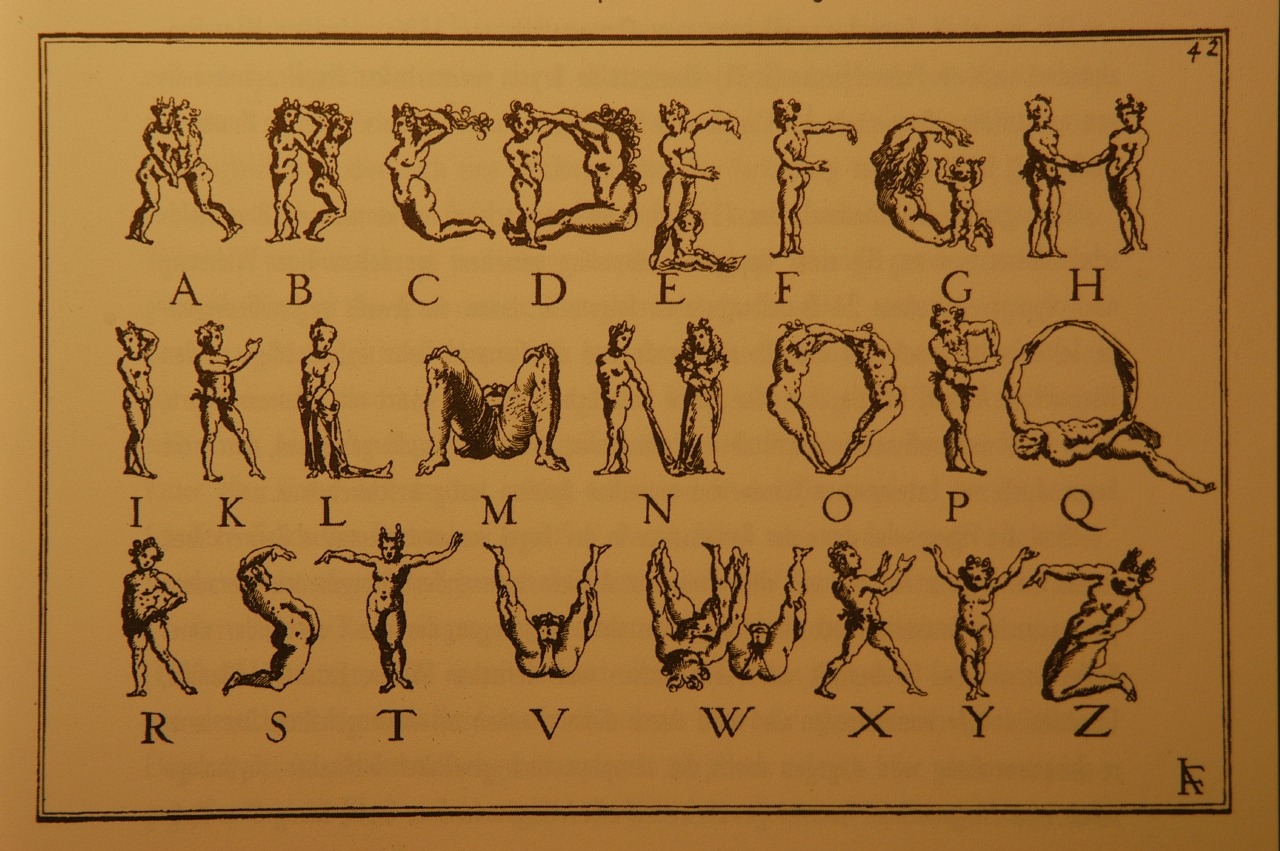 42
A B C D E F G H
I K L M N O P Q
R S T V W X Y Z